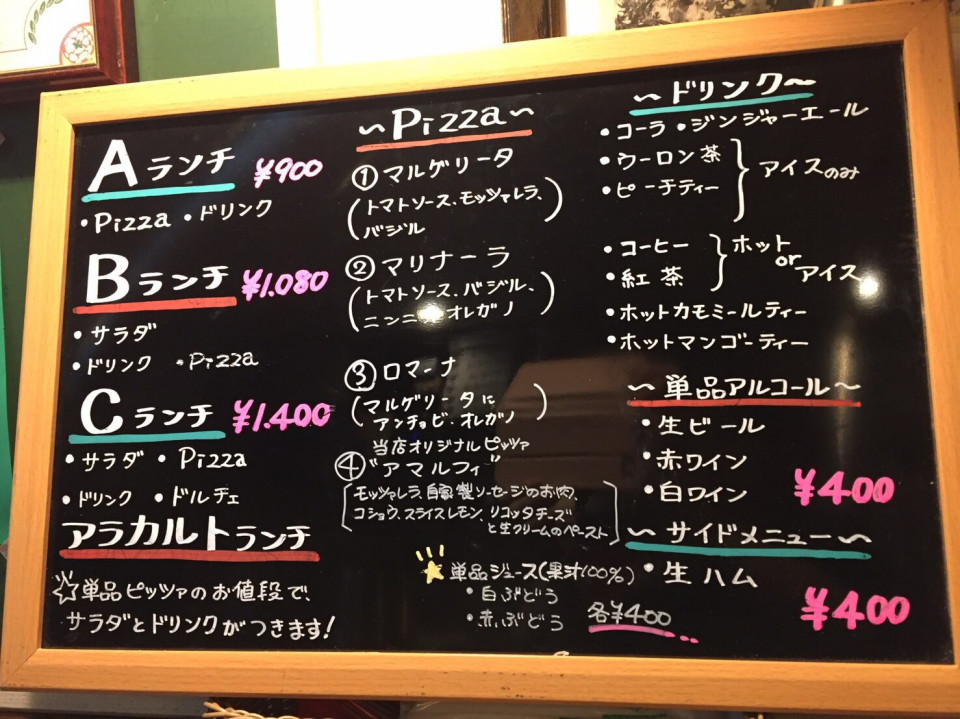 Aランチ ¥900
・Pizza ・ドリンク
Bランチ ¥1.080
・サラダ
・ドリンク ・Pizza
Cランチ ¥1.400
・サラダ ・Pizza
・ドリンク ・ドルチェ
アラカルトランチ
☆単品ピッツァのお値段で、
サラダとドリンクがつきます!
~Pizza~
①マルゲリータ
(トマトソース、モッツァレラ、
バジル)
②マリナーラ
(トマトソース、バジル、
ニンニク オレガノ)
③ロマーナ
(マルゲリータに
アンチョビ・オレガノ)
当店オリジナルピッツァ
④"アマルフィ"
[モッツァレラ、自家製ソーセージのお肉、
コショウ、スライスレモン、リコッタチーズ
と生クリームのペースト]
単品ジュース(果汁100%)
・白ぶどう
・赤ぶどう 各¥400
~ドリンク~
・コーラ ・ジンジャーエール
・ウーロン茶
・ピーチティー } アイスのみ
・コーヒー
・紅茶 } ホット or アイス
・ホットカモミールティー
・ホットマンゴーティー
~単品アルコール~
・生ビール
・赤ワイン
・白ワイン ¥400
~サイドメニュー~
・生ハム
¥400